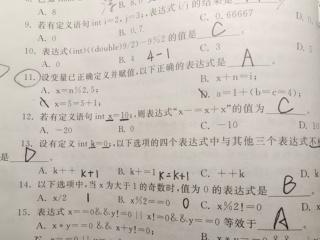 A. 8
9. 若有定义语句int i=2, j=3;,表达式i/j的结果是 C 。
A. 0 B. 0.7 C. 0.66667 D.
10. 表达式(int)((double)9/2)-9%2的值是 A 。
A. 0 B. 4 4-1 C. 3 D. 5
11. 设变量已正确定义并赋值,以下正确的表达式是
A. x=n%2.5; B. x+n=i;
C. x=5=4+1; D. a=1+(b=c=4);
12. 若有定义语句int x=10;,则表达式“x-=x+x”的值为 C
A. -20 B. 0 C. -10 D.
13. 设有定义int k=0;,以下选项的四个表达式中与其他三个表达式
是 D 。
A. k++ k+1 B. k+=1 k=k+1 C. ++k D. k+1
14. 以下选项中,当x为大于1的奇数时,值为0的表达式是 B
A. x/2 1 B. x%2==0 0 C. x%2!=0 D.
15. 表达式x==0&&y!=0||x!=0&&y==0等效于 A
A. x*y==0&&x+y!=0